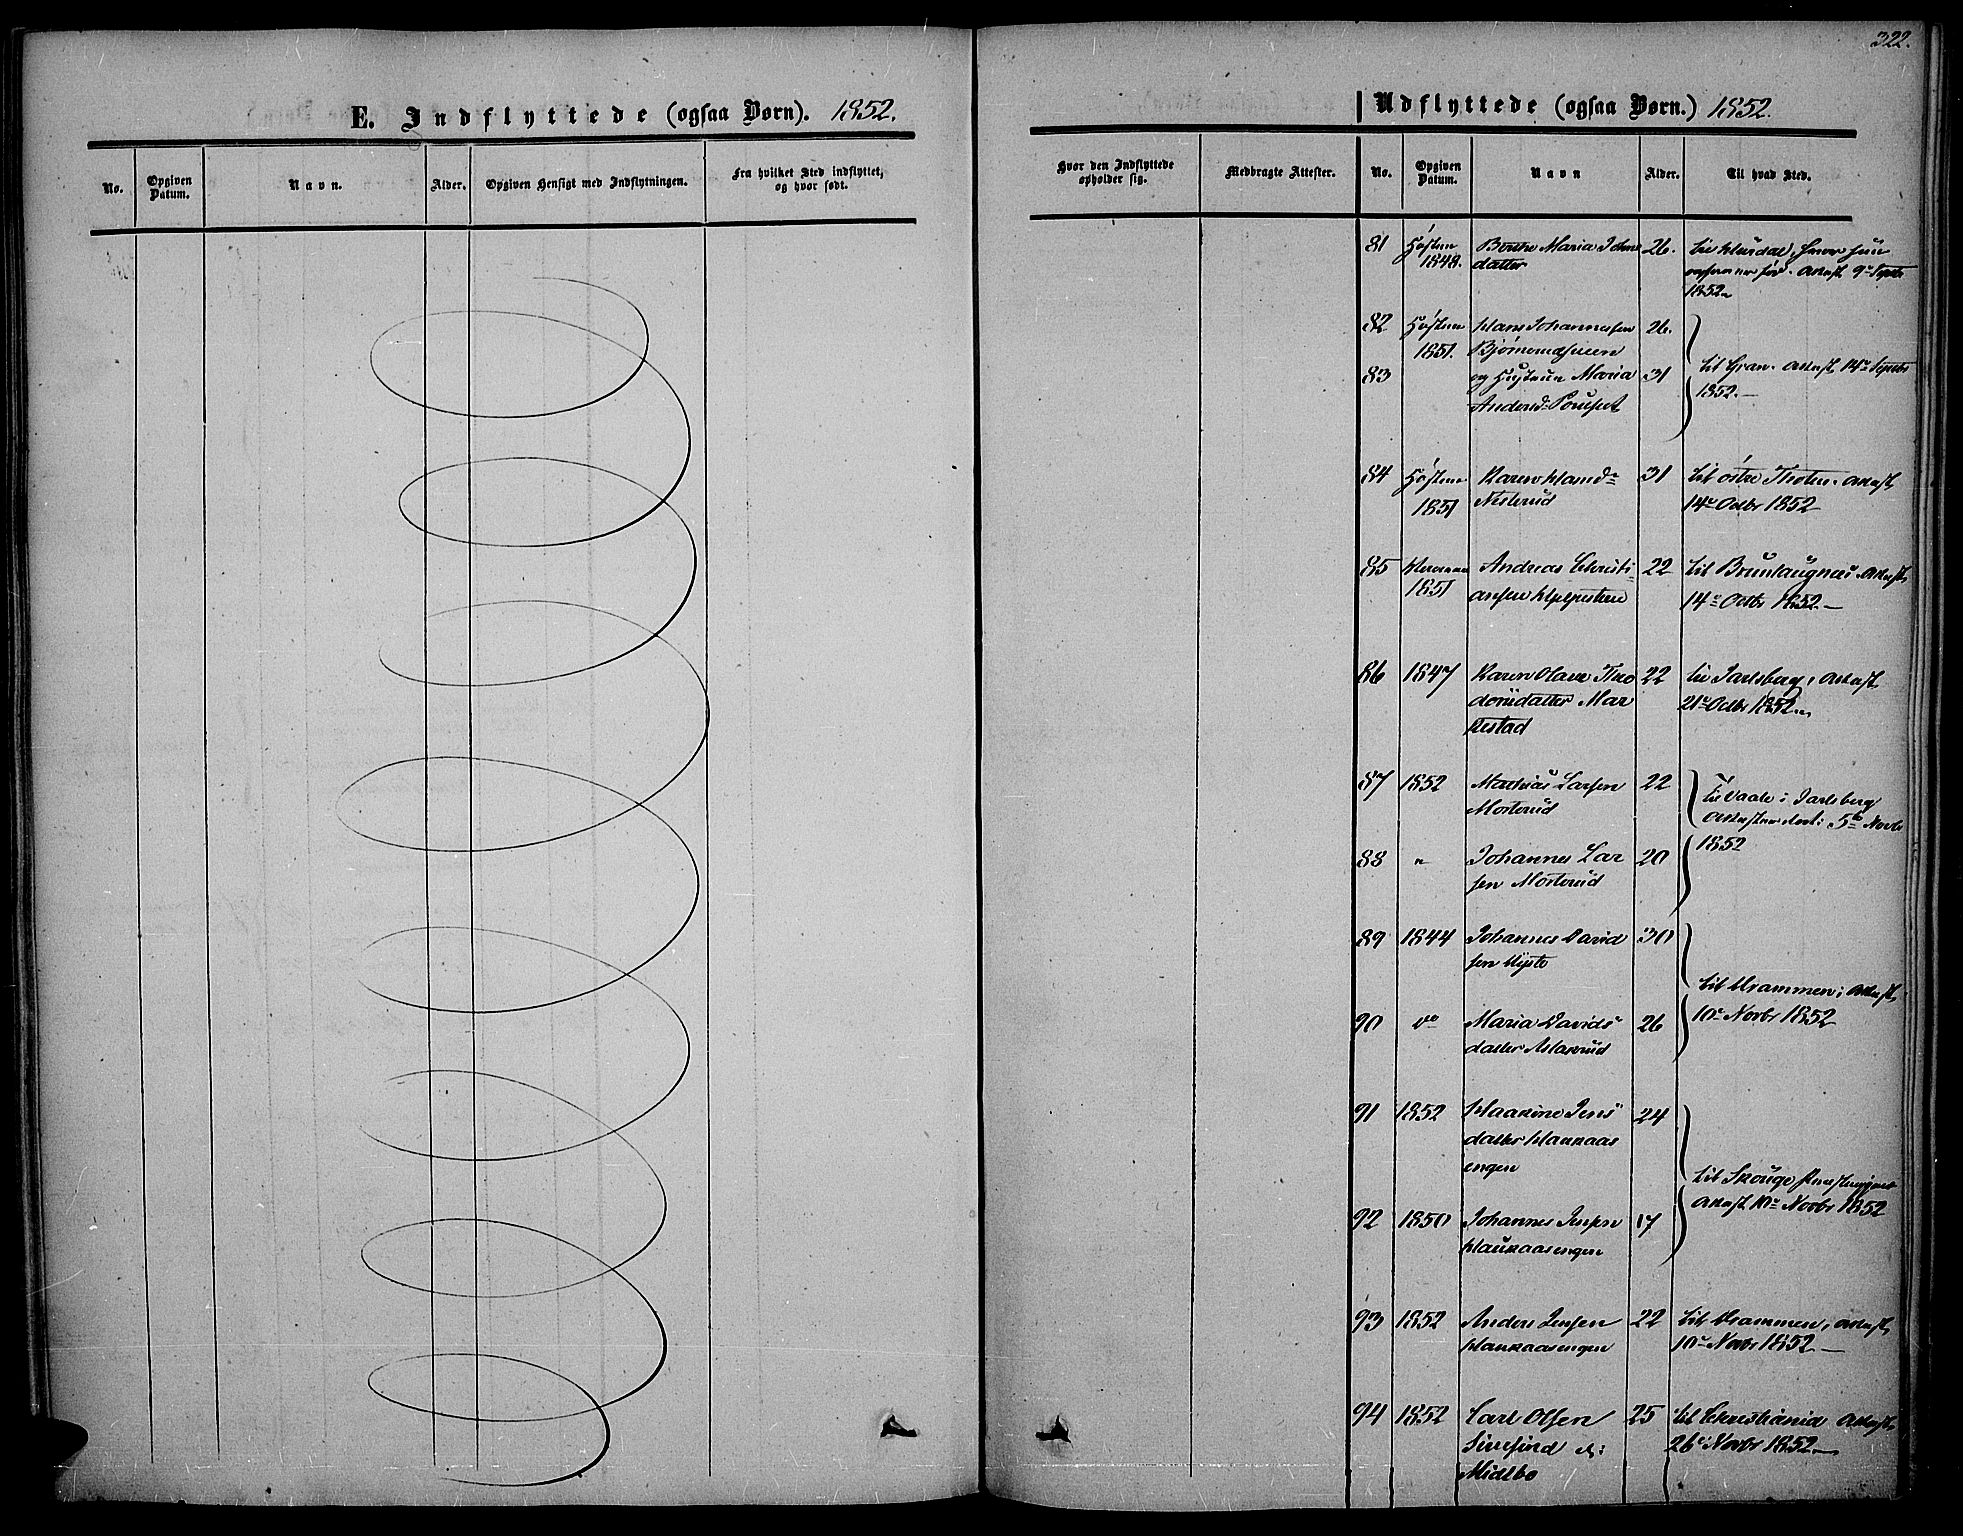 322.
E. Indflyttede (ogsaa Børn). 1852.
No.
Opgiven Datum.
Navn.
Alder.
Opgiven Hensigt med Indflytningen.
Fra hvilket Sted indflyttet, og hvor født.
Udflyttede (ogsaa Børn.) 1852.
Hvor den Indflyttede opholder sig.
Medbragte Attester.
No.
Opgiven Datum.
Navn
Alder.
Til hvad Sted.
81 Høsten Berthe Maria 26. til Hurdal, hvor hun
1848. datter for. Attest 9de Septbr
1852
82 Høsten Hans Johannesen 26.
1851.
83 og Hustrue Maria 31 til Gran. Attest 14de Septbr
Andersd. 1852.
84 Høsten Karen Hansd. 31 til østre Thoten. Attest
1851 Nesterud 14de Octbr 1852
85 Andreas Christi- 22 til Brunlaugnæs. Attest
1851 ansen 14de Octbr 1852.
86 1847 Karen Olava Theo 22 til Jarlsberg, Attest
dorsdatter Mar 21de Octbr 1852
kestad
87 1852 Mathias Larsen 22 til Vaale i Jarlsberg
Morterud 5te Novbr
88 " Johannes Lar 20 1852
sen Morterud
89 1844 Johannes David 30
sen til Drammen; Attest
90 do Maria Davids 26 10de Novbr 1852
datter
91 1852 Maarine Jens 24
datter Haukaas
engen til Skouge Præstegjeld
Attest 10de Novbr 1852
92 1850 Johannes Jensen 17
Haukaasengen
93 1852 Anders Jensen 22 til Drammen, Attest
Haukaasengen 10de Novbr 1852
94 1852 Carl Olsen 25 til Christiania Attest
26de Novbr 1852
Midtbø